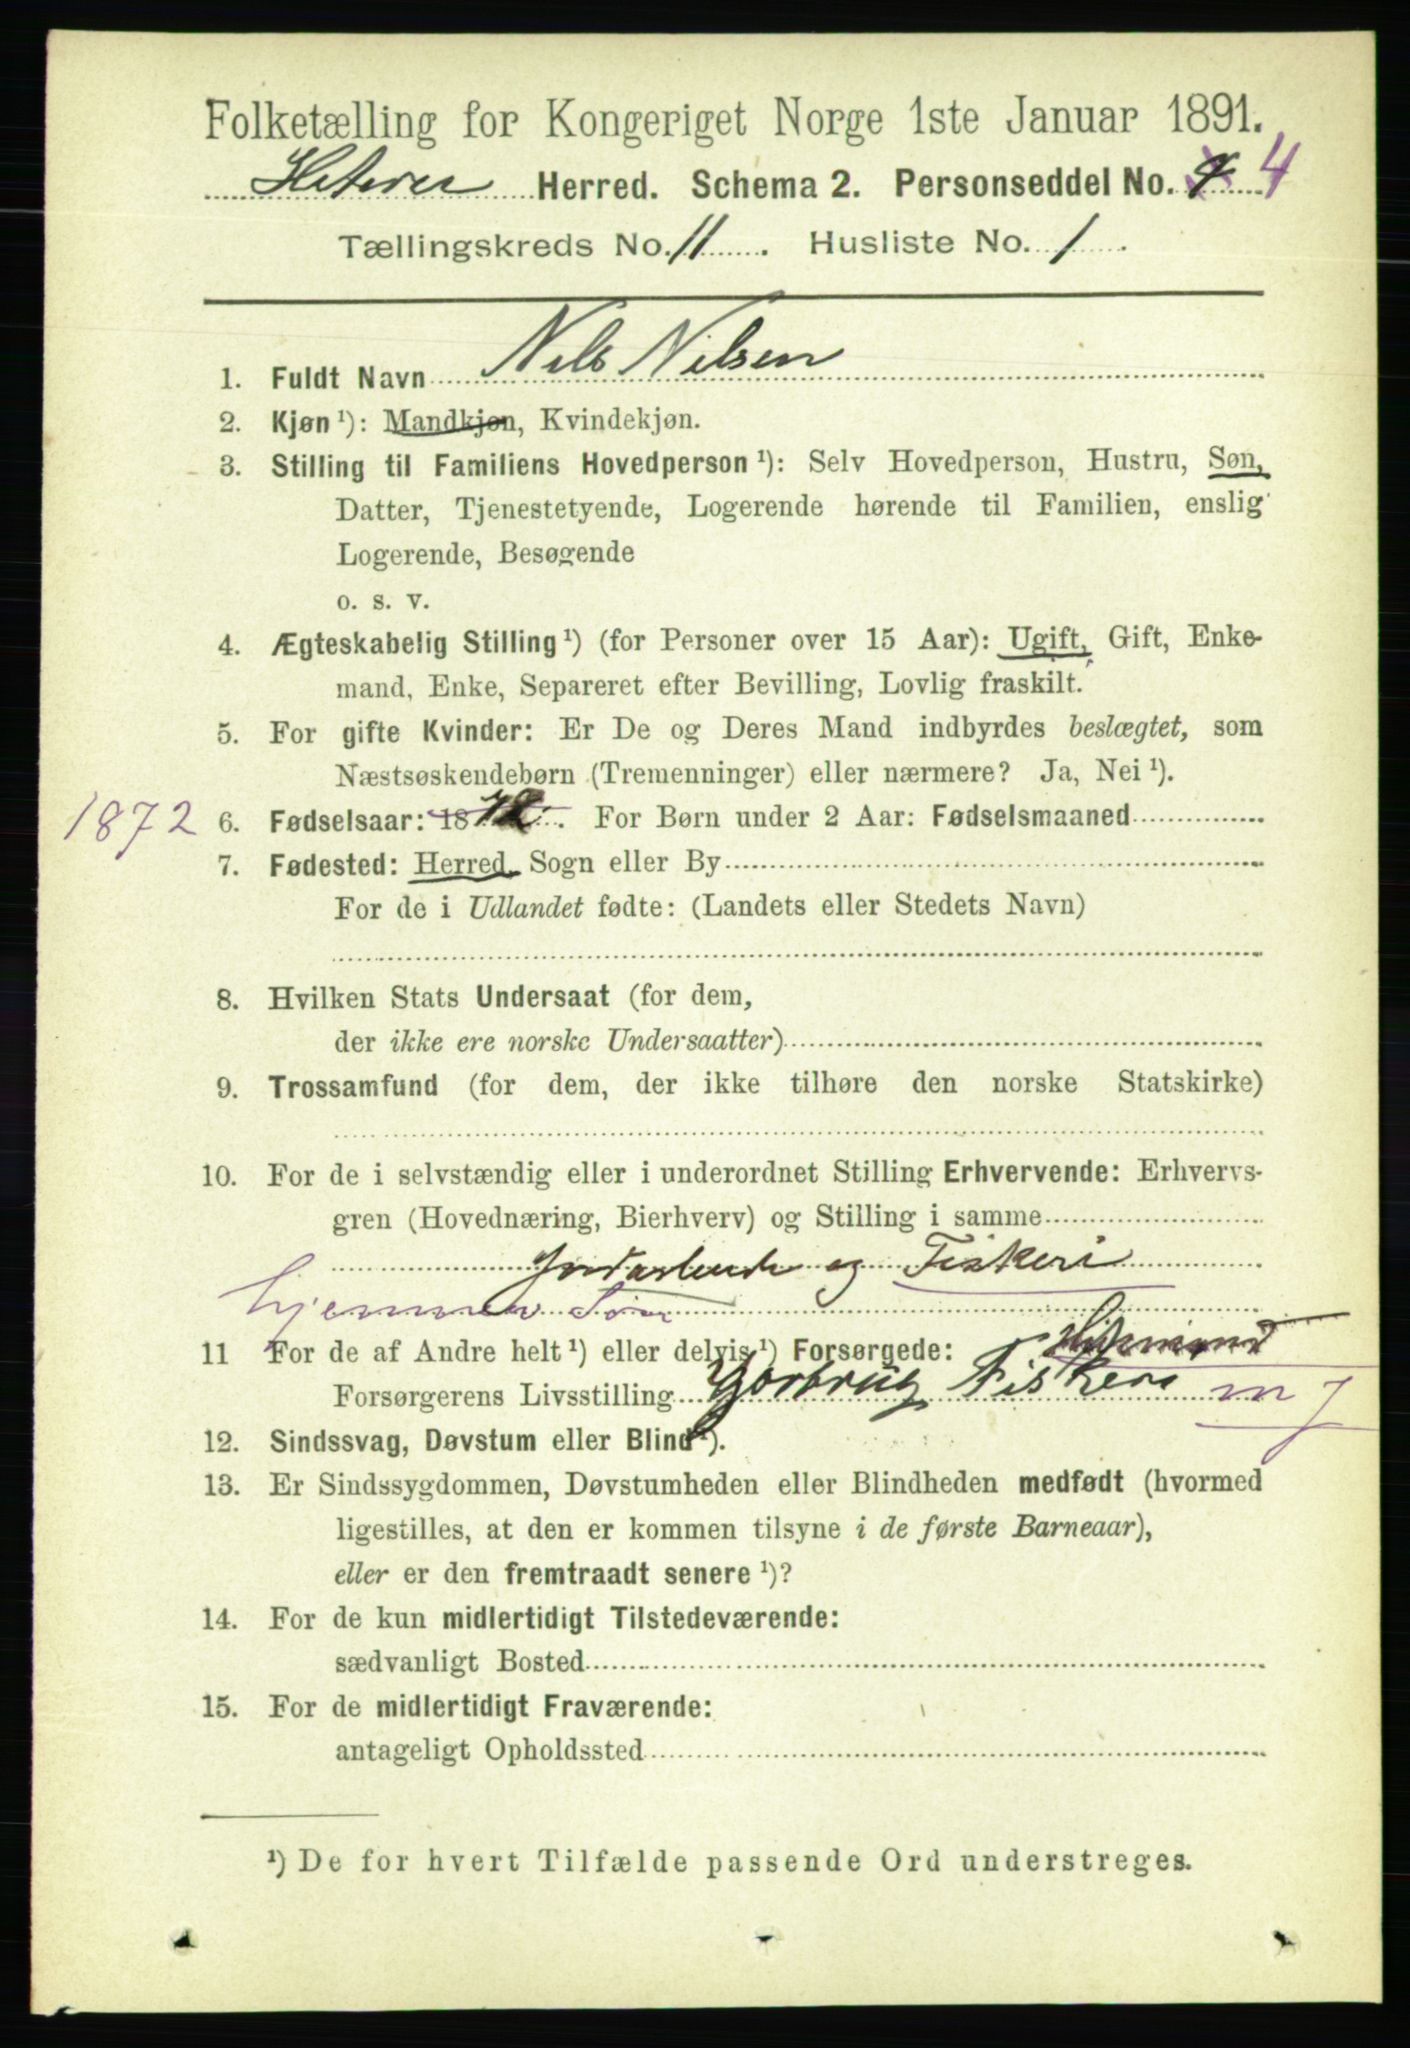 Folketælling for Kongeriget Norge 1ste Januar 1891.
Herred. Schema 2. Personseddel No. 4
Tællingskreds No. 11. Husliste No. 1.
1. Fuldt Navn Nils Nilsen
2. Kjøn ¹): Mandkjøn, Kvindekjøn.
3. Stilling til Familiens Hovedperson ¹): Selv Hovedperson, Hustru, Søn,
Datter, Tjenestetyende, Logerende hørende til Familien, enslig
Logerende, Besøgende
o. s. v.
4. Ægteskabelig Stilling ¹) (for Personer over 15 Aar): Ugift, Gift, Enke-
mand, Enke, Separeret efter Bevilling, Lovlig fraskilt.
5. For gifte Kvinder: Er De og Deres Mand indbyrdes beslægtet, som
Næstsøskendebørn (Tremenninger) eller nærmere? Ja, Nei ¹).
1872 6. Fødselsaar: 1872. For Børn under 2 Aar: Fødselsmaaned
7. Fødested: Herred, Sogn eller By
For de i Udlandet fødte: (Landets eller Stedets Navn)
8. Hvilken Stats Undersaat (for dem,
der ikke ere norske Undersaatter)
9. Trossamfund (for dem, der ikke tilhøre den norske Statskirke)
10. For de i selvstændig eller i underordnet Stilling Erhvervende: Erhvervs-
gren (Hovednæring, Bierhverv) og Stilling i samme
og Fiskeri
hjemmev Søn
11 For de af Andre helt ¹) eller delvis ¹) Forsørgede:
Forsørgerens Livsstilling Gorbrug Fiskeri
12. Sindssvag, Døvstum eller Blind ¹).
13. Er Sindssygdommen, Døvstumheden eller Blindheden medfødt (hvormed
ligestilles, at den er kommen tilsyne i de første Barneaar),
eller er den fremtraadt senere ¹)?
14. For de kun midlertidigt Tilstedeværende:
sædvanligt Bosted
15. For de midlertidigt Fraværende:
antageligt Opholdssted
¹) De for hvert Tilfælde passende Ord understreges.